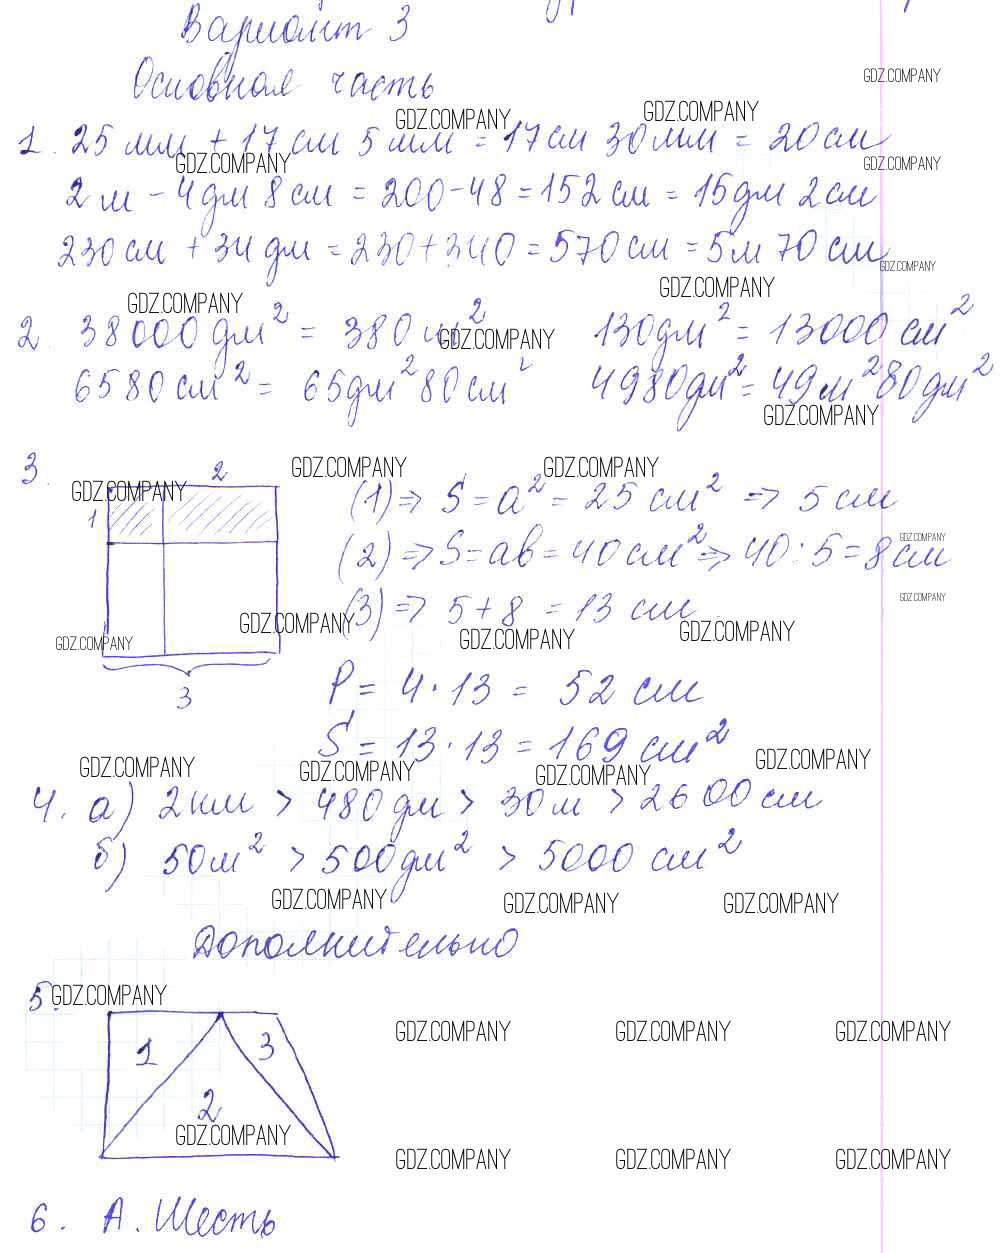 Вариант 3
Основная часть
GDZ.COMPANY
GDZ.COMPANY GDZ.COMPANY
1. 25 мм + 17 см 5 мм = 17 см 30 мм = 20 см
GDZ.COMPANY GDZ.COMPANY
2 м - 4 дм 8 см = 200 - 48 = 152 см = 15 дм 2 см
230 см + 34 дм = 230 + 340 = 570 см = 5 м 70 см
GDZ.COMPANY
GDZ.COMPANY GDZ.COMPANY
2. 38000 дм² = 380 м² 130 дм² = 13000 см²
GDZ.COMPANY
6580 см² = 65 дм² 80 см² 4980 дм² = 49 м² 80 дм²
GDZ.COMPANY
3. 2
GDZ.COMPANY GDZ.COMPANY
GDZ.COMPANY
1 (1) => S = a² = 25 см² => 5 см
GDZ.COMPANY
(2) => S = ab = 40 см² => 40 : 5 = 8 см
GDZ.COMPANY
(3) => 5 + 8 = 13 см
GDZ.COMPANY GDZ.COMPANY GDZ.COMPANY GDZ.COMPANY
3
P = 4 · 13 = 52 см
S = 13 · 13 = 169 см²
GDZ.COMPANY GDZ.COMPANY GDZ.COMPANY GDZ.COMPANY
4. а) 2 км > 480 дм > 30 м > 2600 см
б) 50 м² > 500 дм² > 5000 см²
GDZ.COMPANY GDZ.COMPANY GDZ.COMPANY
Дополнительно
5. GDZ.COMPANY
GDZ.COMPANY GDZ.COMPANY GDZ.COMPANY
1 3
2
GDZ.COMPANY
GDZ.COMPANY GDZ.COMPANY GDZ.COMPANY
6. А. Шесть